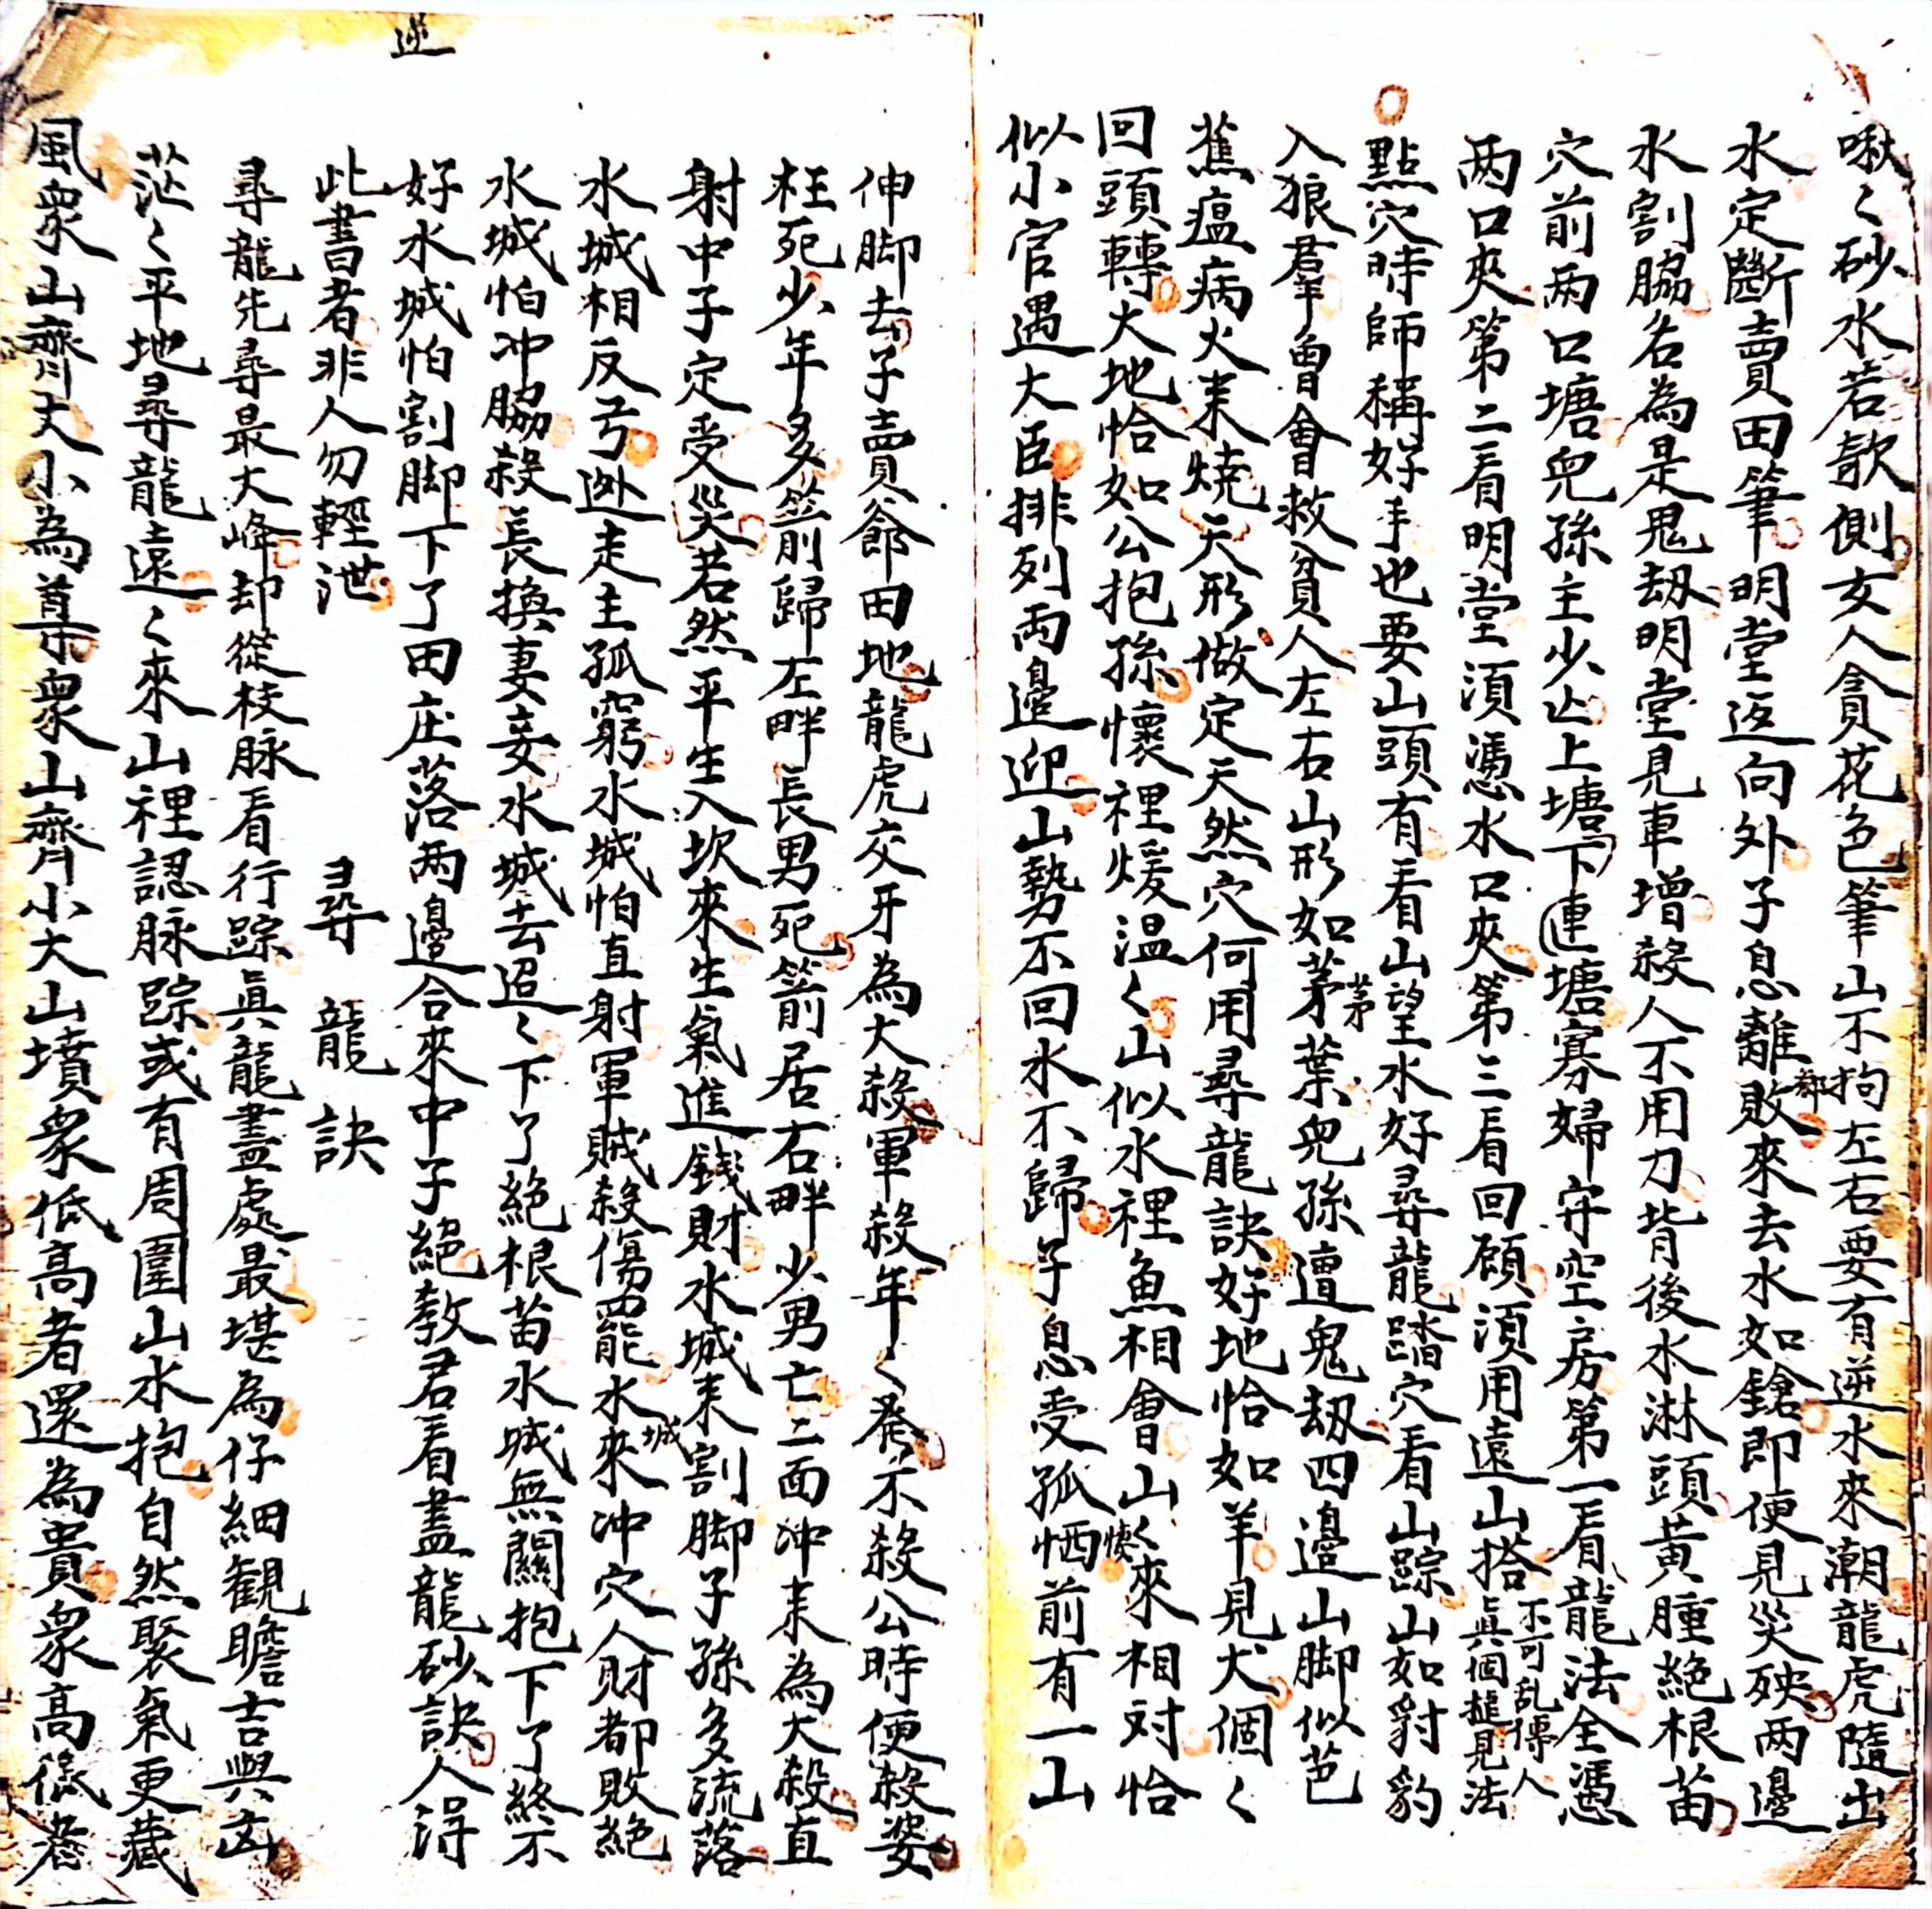 啾〻砂水若欹側女人貪花色筆山不拘左右要有逆水來潮龍虎隨出
水定斷賣田筆明堂返向外子息離敗來去水如鎗即便見災殃两邊
都
水割脇名為是鬼刼明堂見車增殺人不用刀背後水淋頭黃腫絶根苗
穴前两口塘兒孫主少亡上塘下連塘寡婦守空房第一看龍法全憑
两口夾第二看明堂湏憑水口夾第三看回顧湏用遠山搭
真個揰見法
不可乱傳人
點穴時師稱好手也要山頭有看山望水好尋龍踏穴看山踪山如豺豹
入狼羣魯會救貧人左右山形如茅葉兒孫遭鬼刼四邊山脚似芭
茅
蕉瘟病火来燒天形做定天然穴何用尋龍訣好地恰如羊見犬個〻
回頭轉大地恰如公抱孫懷裡煖温〻山似水裡魚相會山〻來相対恰
似小官遇大臣排列两邊迎山勢不回水不歸子息受孤恓前有一山
悽
伸脚去子賣爺田地龍虎交牙為大殺軍殺年〻発不殺公時便殺婆
枉死少年多箭歸左畔長男死箭居右畔少男亡二面冲来為大殺直
射中子定受災若然平生入坎來生氣進錢財水城来割脚子孫多流落
水城相反弓逊走主孤窮水城怕直射軍賊殺傷罷水來冲穴人財都敗絶
城
水城怕冲脇殺長換妻妾水城去迢〻下了絶根苗水城無關抱下了終不
好水城怕割脚下了田庄落两邊合來中子絕教君看盡龍砂訣人淂
逆
此書者非人勿輕泄
尋龍訣
尋龍先尋最大峰却從枝脉看行踪真龍盡處最堪為仔細観瞻吉與凶
茫〻平地尋龍遠〻來山裡認脉踪或有周圍山水抱自然聚氣更藏
風衆山齊大小為尊衆山齊小大山墳衆低高者還為貴衆高低者